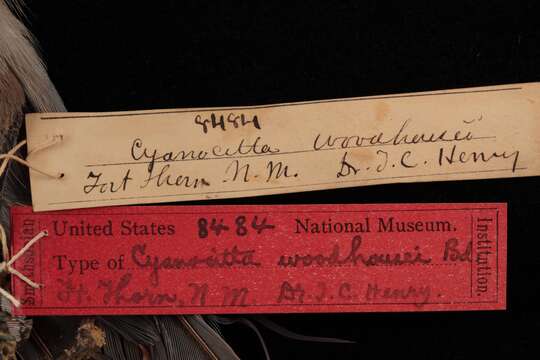 8484
Cyanocitta woodhouseii
Fort Thorn N.M. Dr. T. C. Henry
United States 8484 National Museum.
Type of Cyanocitta woodhousei Bd
Ft. Thorn, N.M. Dr. T. C. Henry.
Smithsonian
Institution.